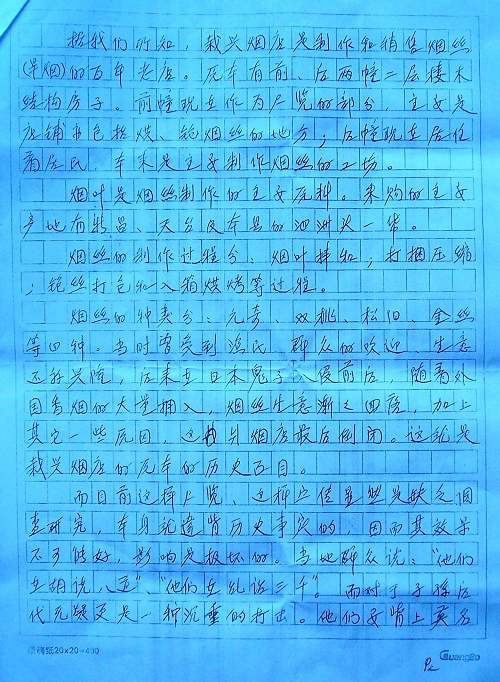 据我们所知，裁兴烟店是制作和销售烟丝
(旱烟)的百年老店。原本有前、后两幢二层楼木
结构房子。前幢现在作为展览的部分，主要是
店铺也包括烘、铇烟丝的地方；后幢现在居住
着居民，本来是主要制作烟丝的工场。
烟叶是烟丝制作的主要原料。采购的主要
产地有新昌、天台及本县的泗洲头一带。
烟丝的制作过程分：烟叶拌和；打捆压缩
；铇丝打包和入箱烘烤等过程。
烟丝的种类分：元奇、双桃、松旧、金丝
等四种。当时曾受到渔民、群众的欢迎，生意
还好兴隆，后来在日本鬼子入侵前后，随着外
国香烟的大量拥入，烟丝生意渐之四落，加上
其它一些原因，这 烟店最后倒闭。这就是
裁兴烟店的原本的历史面目。
而目前这样展览、这种 值显然是缺乏调
查研究，本身就违背历史事实的，因而其效果
不可能好，影响是极坏的。当地群众说："他们
在胡说八道"、"他们在乱话三千"。而对于子孙后
代无疑更是一种沉重的打击。他们要背上莫名
原稿纸20×20=400
GuangBo
P2